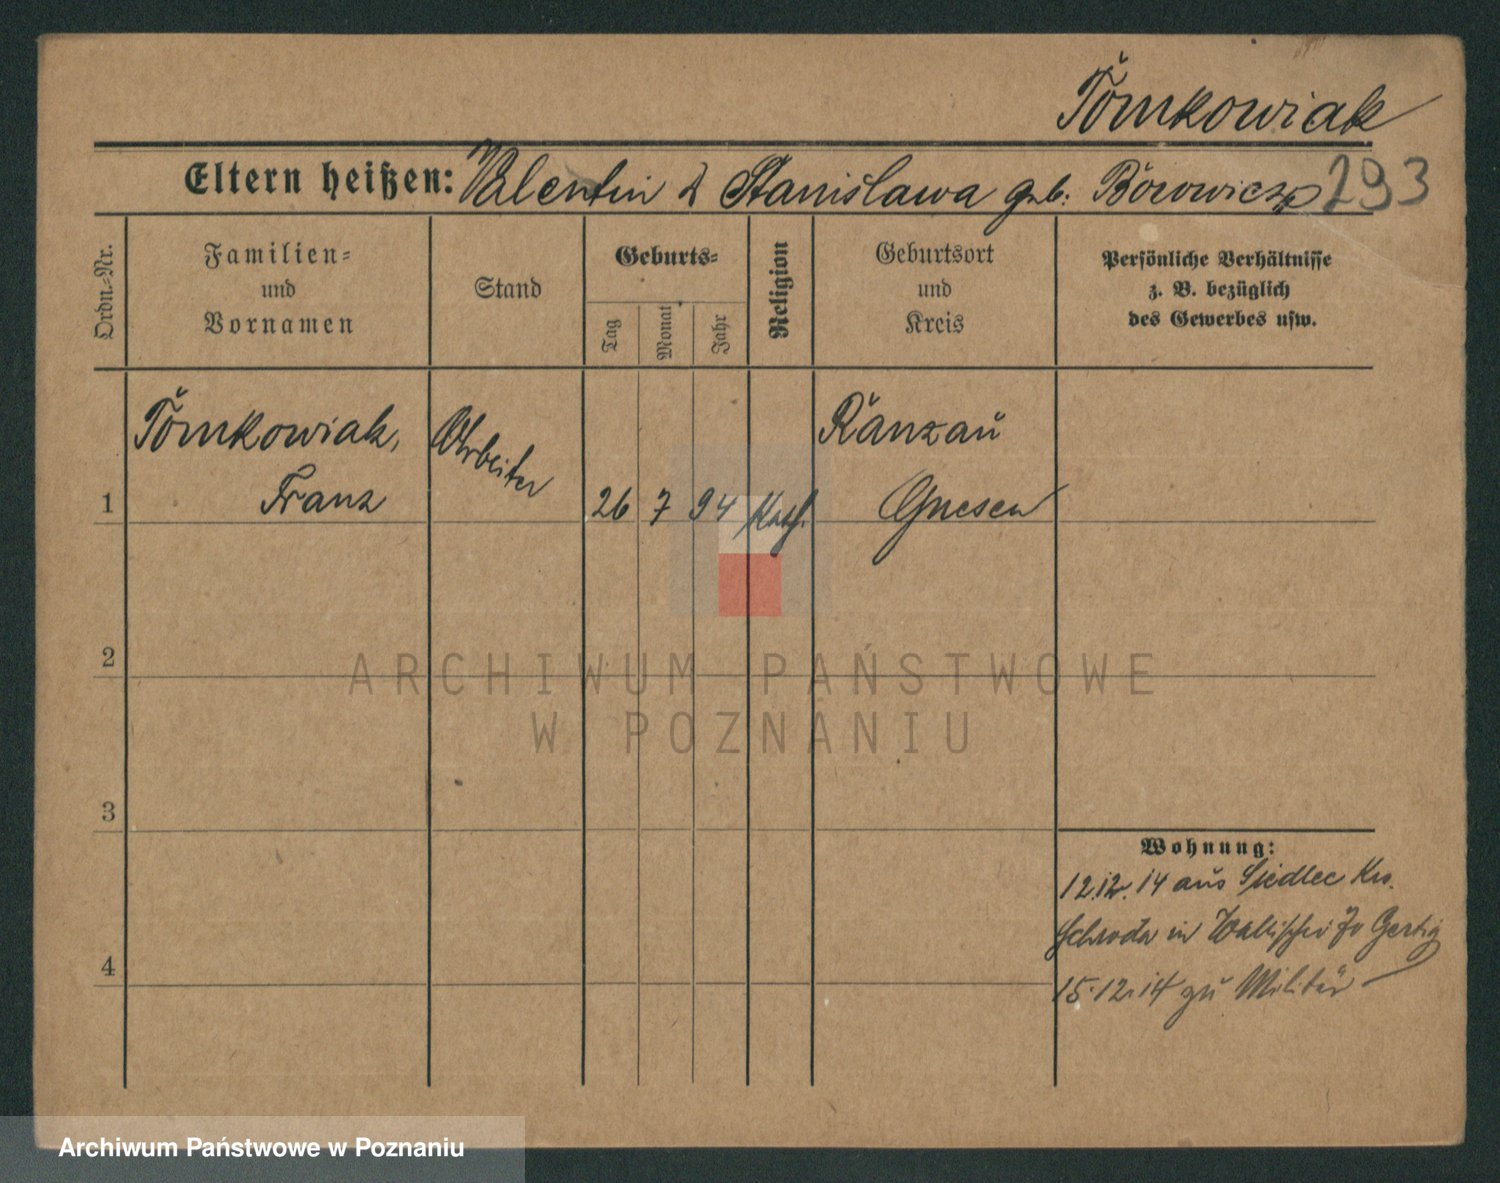 Tomkowiak
Eltern heißen: Valentin & Stanislawa geb: 293
Ordn.-Nr.
Familien-
und
Vornamen
Stand
Geburts-
Tag
Monat
Jahr
Religion
Geburtsort
und
Kreis
Persönliche Verhältnisse
z. B. bezüglich
des Gewerbes usw.
1
Tomkowiak,
Franz
Arbeiter
26 7 94 Kath.
Ranzau
Gnesen
2
3
4
ARCHIWUM PAŃSTWOWE
W POZNANIU
Wohnung:
12.12.14 aus Siedlec Krs.
Schroda in
15.12.14 zu Militär
Archiwum Państwowe w Poznaniu